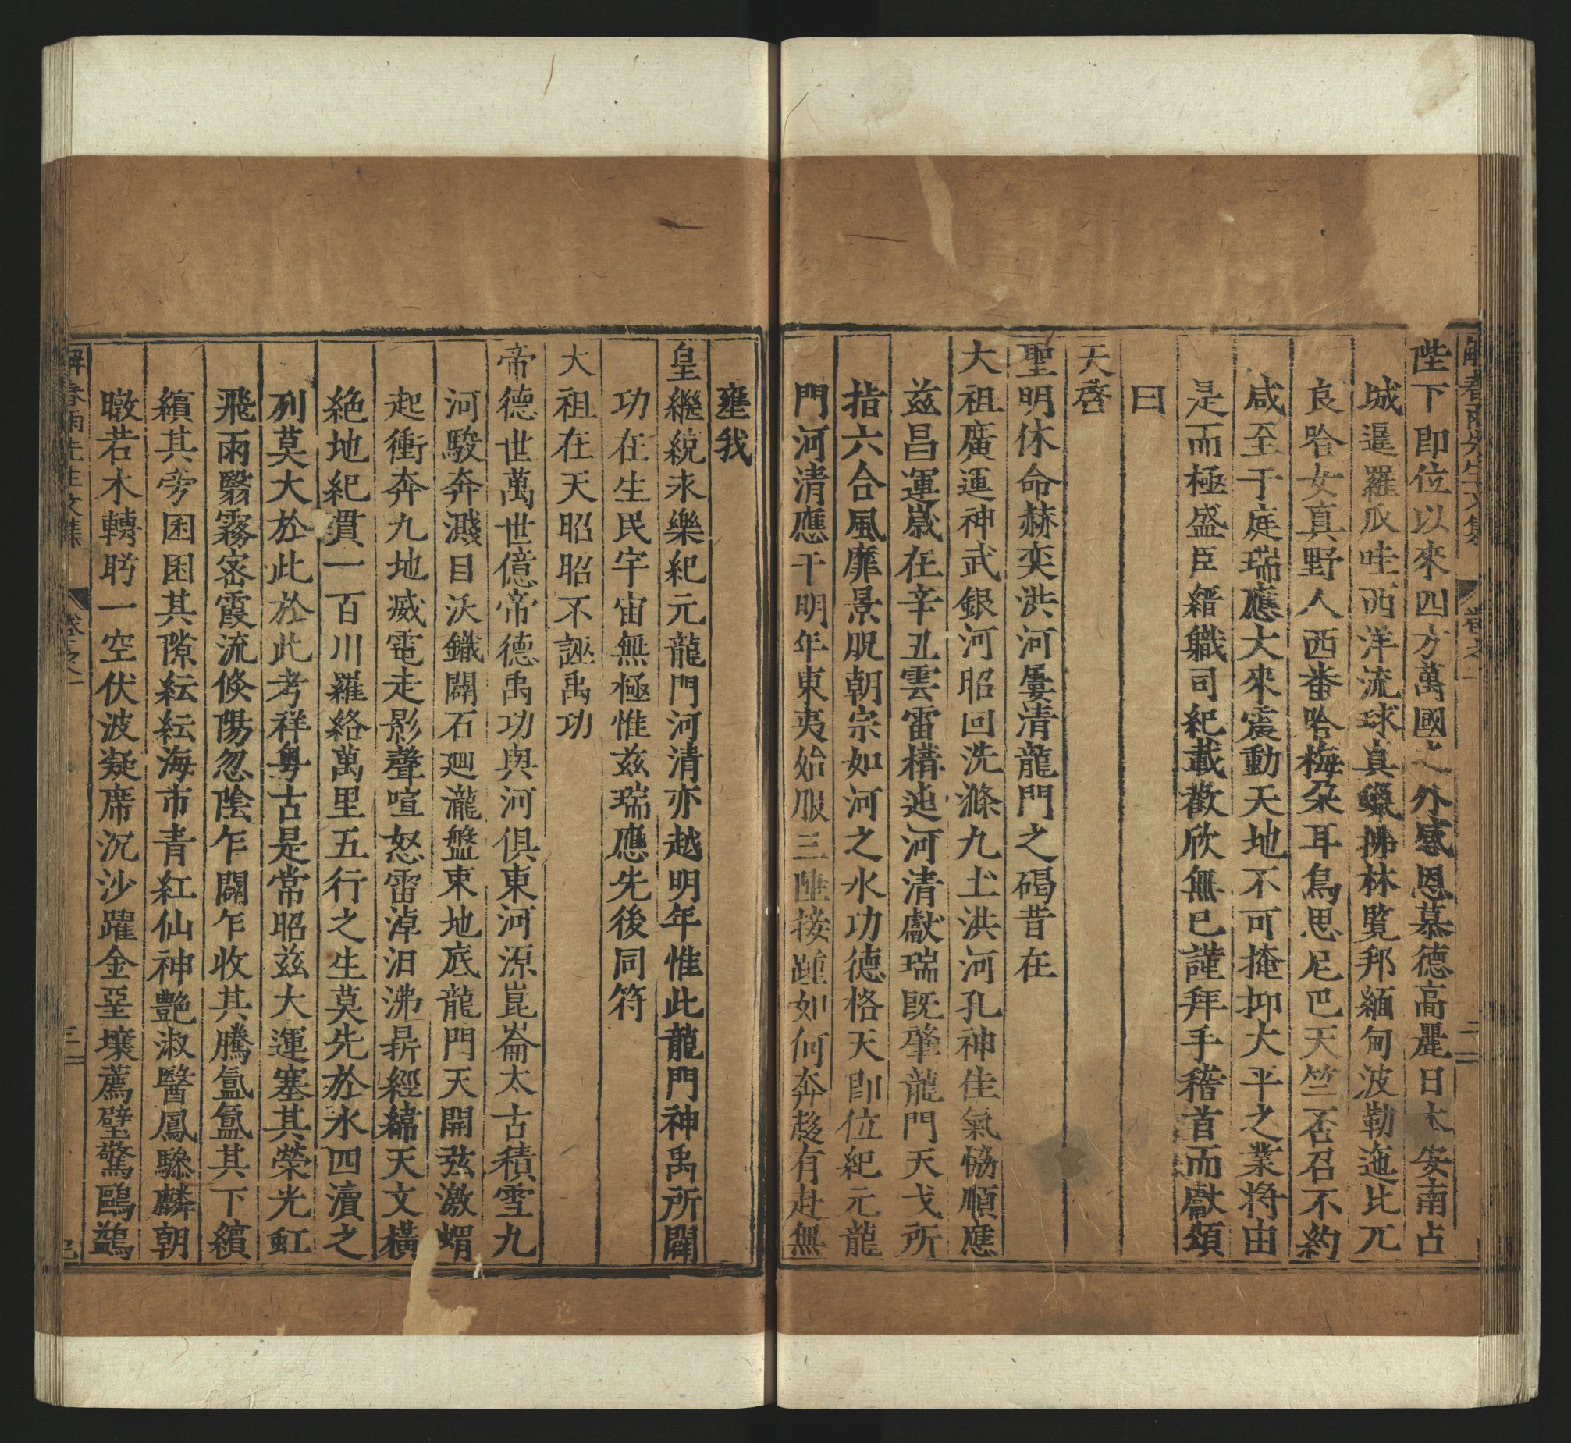 解春雨先生文集 卷之一 二
陛下即位以來四方萬國之外感恩慕德高麗日本安南占
城暹羅爪哇西洋流球真蠟拂林覽邦緬甸波勒迤比兀
良哈女真野人西番哈梅朵耳鳥思尼巴天竺否召不約
咸至于庭瑞應大來震動天地不可掩抑大平之業將由
是而極盛臣縉職司紀載歡欣無已謹拜手稽首而獻頌
曰
天啓
聖明休命赫奕洪河屢清龍門之碣昔在
大祖廣運神武銀河昭回洗滌九土洪河孔神佳氣恊順應
兹昌運歲在辛丑雲雷構迍河清獻瑞既肇龍門天戈所
指六合風靡景貺朝宗如河之水功德格天即位紀元龍
門河清應于明年東夷始服三陲接踵如何奔趍有赴無
壅我
皇繼統永樂紀元龍門河清亦越明年惟此龍門神禹所闢
功在生民宇宙無極惟兹瑞應先後同符
大祖在天昭昭不誣禹功
帝德世萬世億帝德禹功與河俱東河源崑崙太古積雪九
河駿奔濺目沃鐵闢石廻瀧盤束地底龍門天開弦激蝟
起衝奔九地威電走影聲喧怒雷淖汨沸鼎經緯天文橫
絶地紀貫一百川羅絡萬里五行之生莫先於水四瀆之
列莫大於此於此考祥粤古是常昭兹大運塞其榮光虹
飛雨翳霧密霞流倐陽忽陰乍闢乍收其騰氤氳其下繽
繽其旁囷囷其隙紜紜海市青紅仙神艷淑翳鳳驂麟朝
暾若木轉眄一空伏波凝席沉沙躍金堊壤薦壁驚鷗鷀
解春雨先生文集 卷之一 三